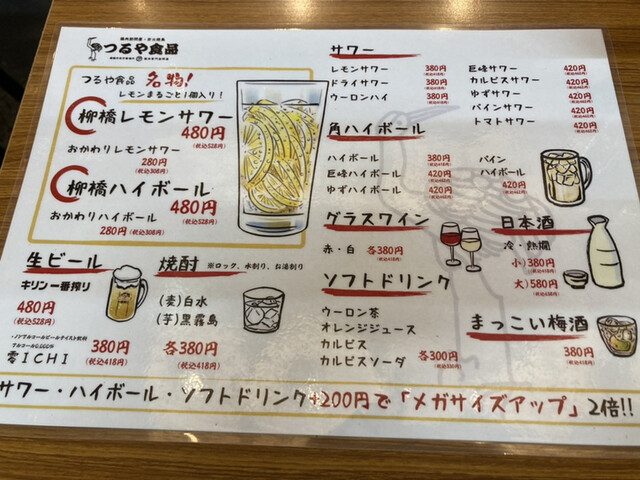 つるや食品
つるや食品 名物!
レモンまるごと1個入り!
柳橋レモンサワー
480円
(税込528円)
おかわりレモンサワー
280円
(税込308円)
柳橋ハイボール
480円
(税込528円)
おかわりハイボール
280円(税込308円)
サワー
レモンサワー 380円
(税込418円)
ドライサワー 380円
(税込418円)
ウーロンハイ 380円
(税込418円)
巨峰サワー 420円
(税込462円)
カルピスサワー 420円
(税込462円)
ゆずサワー 420円
(税込462円)
パインサワー 420円
(税込462円)
トマトサワー 420円
(税込462円)
角ハイボール
ハイボール 380円
(税込418円)
巨峰ハイボール 420円
(税込462円)
ゆずハイボール 420円
(税込462円)
パイン
ハイボール 420円
(税込462円)
グラスワイン
赤・白 各380円
(税込418円)
日本酒
冷・熱燗
小)380円
(税込418円)
大)580円
(税込638円)
生ビール
キリン一番搾り
480円
(税込528円)
・ノンアルコールビールテイスト飲料
アルコール0.00%
零ICHI 380円
(税込418円)
焼酎 ※ロック、水割り、お湯割り
(麦)白水
(芋)黒霧島
各380円
(税込418円)
ソフトドリンク
ウーロン茶
オレンジジュース
カルピス
カルピスソーダ 各300円
(税込330円)
まっこい梅酒
380円
(税込418円)
サワー・ハイボール・ソフトドリンク+200円で「メガサイズアップ」2倍!!